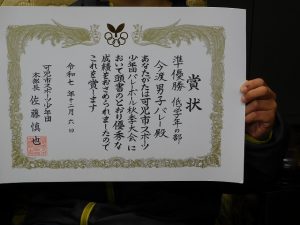 賞状
準優勝 低学年の部
今渡男子バレー殿
あなたがたは可児市スポーツ
少年団バレーボール秋季大会に
おいて頭書のとおり優秀な
成績をおさめられましたので
これを賞します
令和七年十二月六日
可児市スポーツ少年団
本部長 佐藤慎也